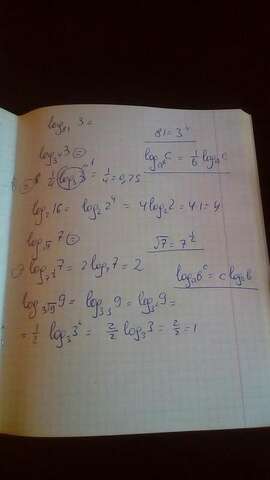 log₈₁ 3 =
81 = 3⁴
log₃⁴ 3 =
logₐᵇ c = 1/b logₐ c
= 1/4 log₃ 3 = 1/4 = 0,25
log₂ 16 = log₂ 2⁴ = 4 log₂ 2 = 4·1 = 4
log√7 7 =
√7 = 7^½
log₇½ 7 = 2 log₇ 7 = 2
logₐ bᶜ = c logₐ b
log₃√9 9 = log₃·₃ 9 = log₃² 9 =
= 1/2 log₃ 3² = 2/2 log₃ 3 = 2/2 = 1